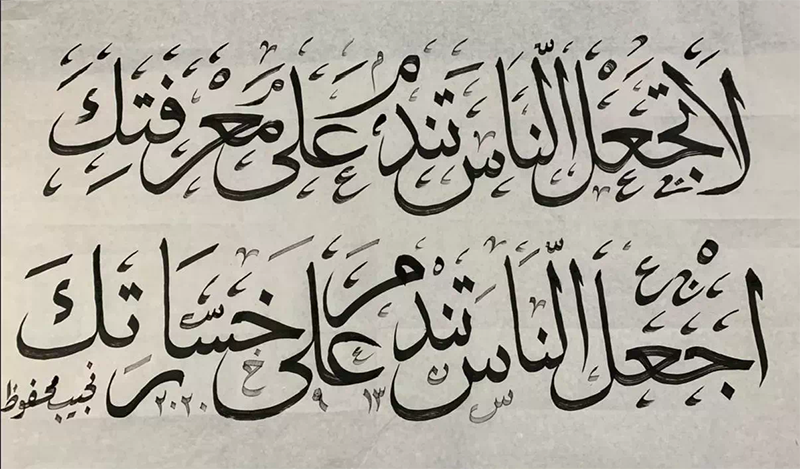 لا تجعل الناس تندم على معرفتك
اجعل الناس تندم على خسارتك
١٣ ٩ ٢٠٢٠
نجيب محفوظ